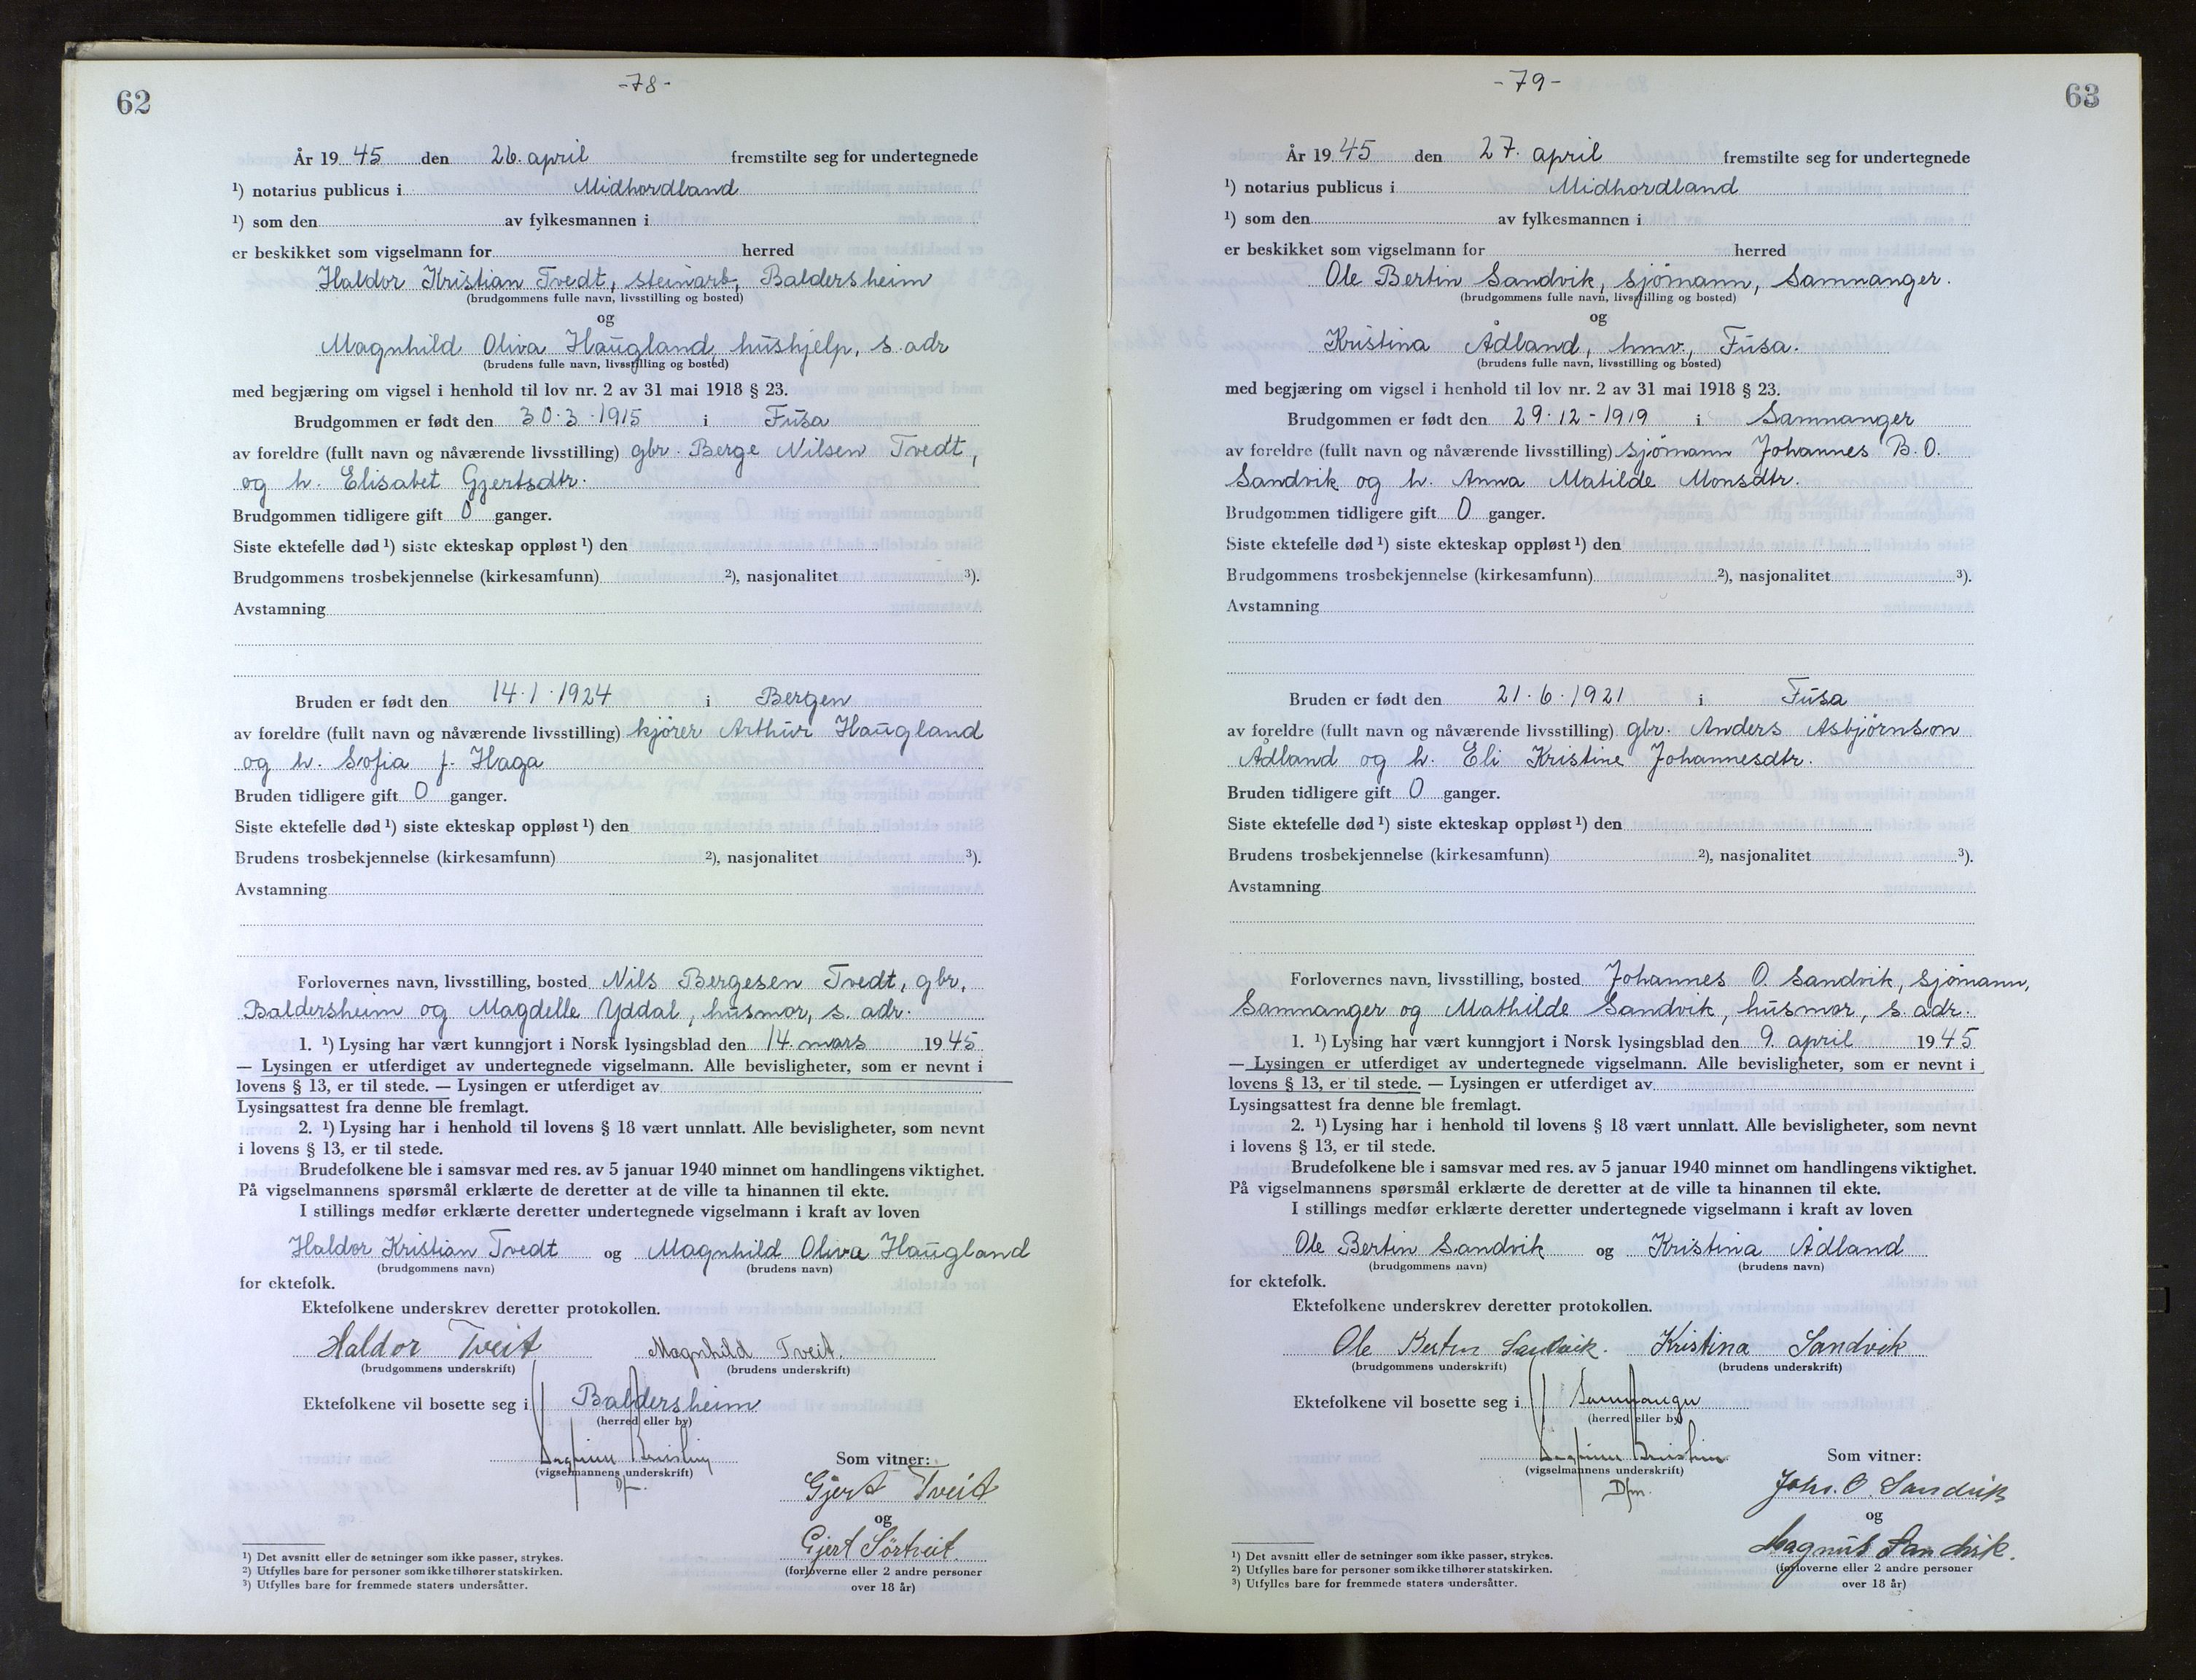 62
-78-
År 19 45 den 26. april fremstilte seg for undertegnede
¹) notarius publicus i Midhordland
¹) som den av fylkesmannen i
er beskikket som vigselmann for herred
Haldor Kristian Tvedt, steinarb., Baldersheim
(brudgommens fulle navn, livsstilling og bosted)
og
Magnhild Oliva Haugland, hushjelp, s. adr
(brudens fulle navn, livsstilling og bosted)
med begjæring om vigsel i henhold til lov nr. 2 av 31 mai 1918 § 23.
Brudgommen er født den 30.3.1915 i Fusa
av foreldre (fullt navn og nåværende livsstilling) gbr. Berge Nilsen Tvedt,
og h. Elisabet Gjertsdtr.
Brudgommen tidligere gift 0 ganger.
Siste ektefelle død ¹) siste ekteskap oppløst ¹) den
Brudgommens trosbekjennelse (kirkesamfunn) ²), nasjonalitet ³).
Avstamning
Bruden er født den 14.1.1924 i Bergen
av foreldre (fullt navn og nåværende livsstilling) kjører Arthur Haugland
og h. Sofia f. Haga
Bruden tidligere gift 0 ganger.
Siste ektefelle død ¹) siste ekteskap oppløst ¹) den
Brudens trosbekjennelse (kirkesamfunn) ²), nasjonalitet ³).
Avstamning
Forlovernes navn, livsstilling, bosted Nils Bergesen Tvedt, gbr,
Baldersheim og Magdelle Yddal, husmor, s. adr.
1. ¹) Lysing har vært kunngjort i Norsk lysingsblad den 14. mars 1945
— Lysingen er utferdiget av undertegnede vigselmann. Alle bevisligheter, som er nevnt i
lovens § 13, er til stede. — Lysingen er utferdiget av
Lysingsattest fra denne ble fremlagt.
2. ¹) Lysing har i henhold til lovens § 18 vært unnlatt. Alle bevisligheter, som nevnt
i lovens § 13, er til stede.
Brudefolkene ble i samsvar med res. av 5 januar 1940 minnet om handlingens viktighet.
På vigselmannens spørsmål erklærte de deretter at de ville ta hinannen til ekte.
I stillings medfør erklærte deretter undertegnede vigselmann i kraft av loven
Haldor Kristian Tvedt og Magnhild Oliva Haugland
(brudgommens navn) (brudens navn)
for ektefolk.
Ektefolkene underskrev deretter protokollen.
Haldor Tveit Magnhild Tveit.
(brudgommens underskrift) (brudens underskrift)
Ektefolkene vil bosette seg i Baldersheim
(herred eller by)
(vigselmannens underskrift)
Som vitner:
Gjert Tveit
og
Gjert Sörtveit.
(forloverne eller 2 andre personer
over 18 år)
¹) Det avsnitt eller de setninger som ikke passer, strykes.
²) Utfylles bare for personer som ikke tilhører statskirken.
³) Utfylles bare for fremmede staters undersåtter.
63
-79-
År 19 45 den 27. april fremstilte seg for undertegnede
¹) notarius publicus i Midhordland
¹) som den av fylkesmannen i
er beskikket som vigselmann for herred
Ole Bertin Sandvik, sjømann, Samnanger.
(brudgommens fulle navn, livsstilling og bosted)
og
Kristina Ådland, hmv., Fusa.
(brudens fulle navn, livsstilling og bosted)
med begjæring om vigsel i henhold til lov nr. 2 av 31 mai 1918 § 23.
Brudgommen er født den 29.12-1919 i Samnanger
av foreldre (fullt navn og nåværende livsstilling) sjømann Johannes B. O.
Sandvik og h. Anna Matilde Monsdtr.
Brudgommen tidligere gift 0 ganger.
Siste ektefelle død ¹) siste ekteskap oppløst ¹) den
Brudgommens trosbekjennelse (kirkesamfunn) ²), nasjonalitet ³).
Avstamning
Bruden er født den 21.6.1921 i Fusa
av foreldre (fullt navn og nåværende livsstilling) gbr. Anders Asbjørnson
Ådland og h. Eli Kristine Johannesdtr.
Bruden tidligere gift 0 ganger.
Siste ektefelle død ¹) siste ekteskap oppløst ¹) den
Brudens trosbekjennelse (kirkesamfunn) ²), nasjonalitet ³).
Avstamning
Forlovernes navn, livsstilling, bosted Johannes O. Sandvik, sjømann,
Samnanger og Mathilde Sandvik, husmor, s. adr.
1. ¹) Lysing har vært kunngjort i Norsk lysingsblad den 9. april 1945
— Lysingen er utferdiget av undertegnede vigselmann. Alle bevisligheter, som er nevnt i
lovens § 13, er til stede. — Lysingen er utferdiget av
Lysingsattest fra denne ble fremlagt.
2. ¹) Lysing har i henhold til lovens § 18 vært unnlatt. Alle bevisligheter, som nevnt
i lovens § 13, er til stede.
Brudefolkene ble i samsvar med res. av 5 januar 1940 minnet om handlingens viktighet.
På vigselmannens spørsmål erklærte de deretter at de ville ta hinannen til ekte.
I stillings medfør erklærte deretter undertegnede vigselmann i kraft av loven
Ole Bertin Sandvik og Kristina Ådland
(brudgommens navn) (brudens navn)
for ektefolk.
Ektefolkene underskrev deretter protokollen.
Ole Bertin Sandvik. Kristina Sandvik
(brudgommens underskrift) (brudens underskrift)
Ektefolkene vil bosette seg i Samnanger
(herred eller by)
(vigselmannens underskrift)
Dfm.
Som vitner:
Johs. O. Sandvik
og
Magnus Sandvik.
(forloverne eller 2 andre personer
over 18 år)
¹) Det avsnitt eller de setninger som ikke passer, strykes.
²) Utfylles bare for personer som ikke tilhører statskirken.
³) Utfylles bare for fremmede staters undersåtter.